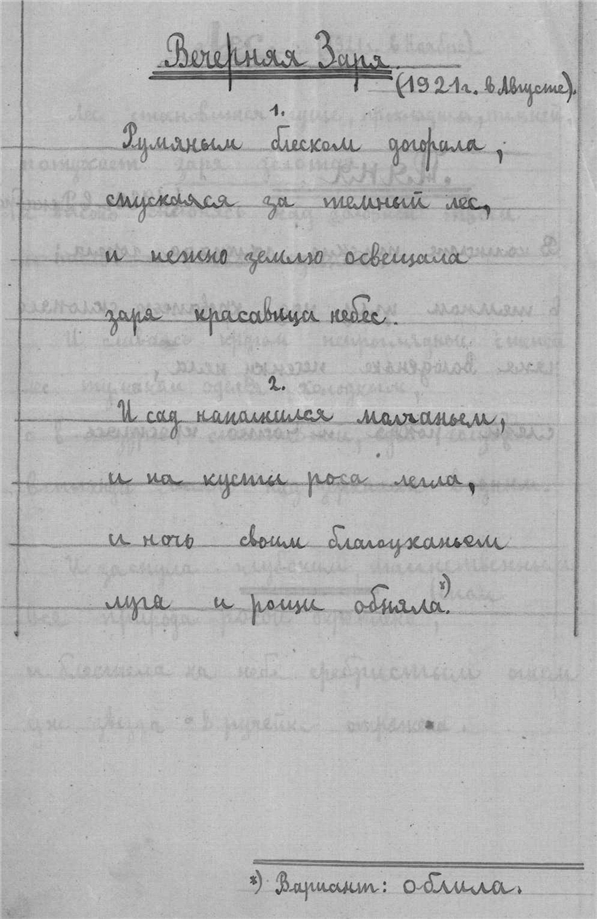 Вечерняя Заря.
(1921 г. в Августе).
1.
Румяным блеском догорала,
спускаяся за темный лес,
и нежно землю освещала
заря красавица небес.
2.
И сад наполнился молчаньем,
и на кусты роса легла,
и ночь своим благоуханьем
луга и рощи обняла.*)
*) Вариант: облила.